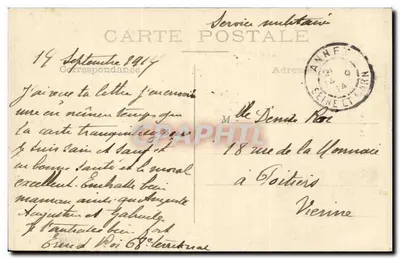 Service militaire
CARTE POSTALE
19 Septembre 1914
Correspondance
Adresse
J'ai reçu ta lettre j'en envoie
une en même temps que
ta carte tranquilisez vous
je suis sain et sauf et
en bonne santé et le moral
excellent. Embrasse bien
maman ainsi que
Augustin et Gabriely
je t'embrasse bien fort
Roi 68e territorial
ANNET
SEINE ET MARNE
M lle Denise Roi
18 rue de la Monnaie
à Poitiers
Vienne
CPAPHIL